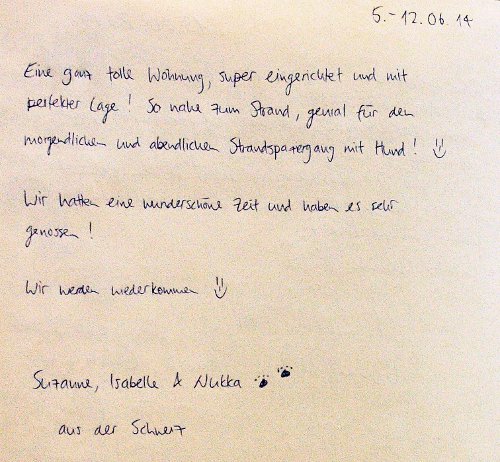 5.-12.06.14
Eine ganz tolle Wohnung, super eingerichtet und mit
perfekter Lage! So nahe zum Strand, genial für den
morgendlichen und abendlichen Strandspaziergang mit Hund! :)
Wir hatten eine wunderschöne Zeit und haben es sehr
genossen!
Wir werden wiederkommen :)
Suzanne, Isabelle & Nukka
aus der Schweiz